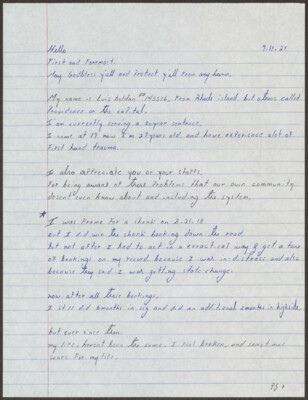 Hello 7.11.21
First and Foremost.
May Godbless y'all and Protect y'all from any harm.
My name is Luis Roldan #143336, From Rhode island, but also called
Providence or the capital.
I am currently serving a 20 year sentence,
I came at 19 now I'm 27 years old, and have experience alot of
First hand trauma
I also appreciate you or your staffs
For being aware of these Problems that our own community
doesn't even know about and including the system.
* I was Frame For a shank on 3.31.18
but I did win the shank booking down the road
but not after I had to act in a way & get a tons
of bookings on my record because I was in distress and also
because they said I was getting state change.
now after all these bookings,
I still did 6 months in seg and did an additional 5 months in highside,
but ever since then.
my life, haven't been the same. I feel broken, and sometimes
fears For my life.
Pg 1